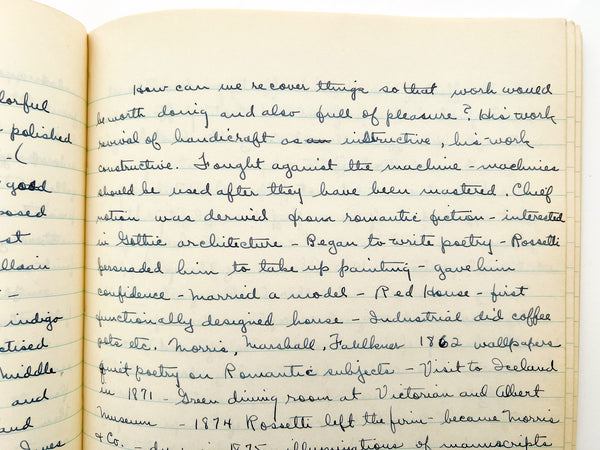 lorful
- polished
- (
good
posed
st
-
indigo
ctised
middle,
and
and
How can we recover things so that work would
be worth doing and also full of pleasure? His work
revival of handicraft as an instructive, his work
constructive. Fought against the machine - machines
should be used after they have been mastered. Chief
notion was derived from romantic fiction - interested
in Gothic architecture - Began to write poetry - Rossetti
persuaded him to take up painting - gave him
confidence - married a model - Red House - first
functionally designed house - Industrial did coffee
pots etc. Morris, Marshall, Faulkener 1862 wallpapers
quit poetry on Romantic subjects - Visit to Iceland
in 1871 - Green dining room at Victorian and Albert
Museum - 1874 Rossetti left the firm - became Morris
& Co. - in 1875 illuminations of manuscripts